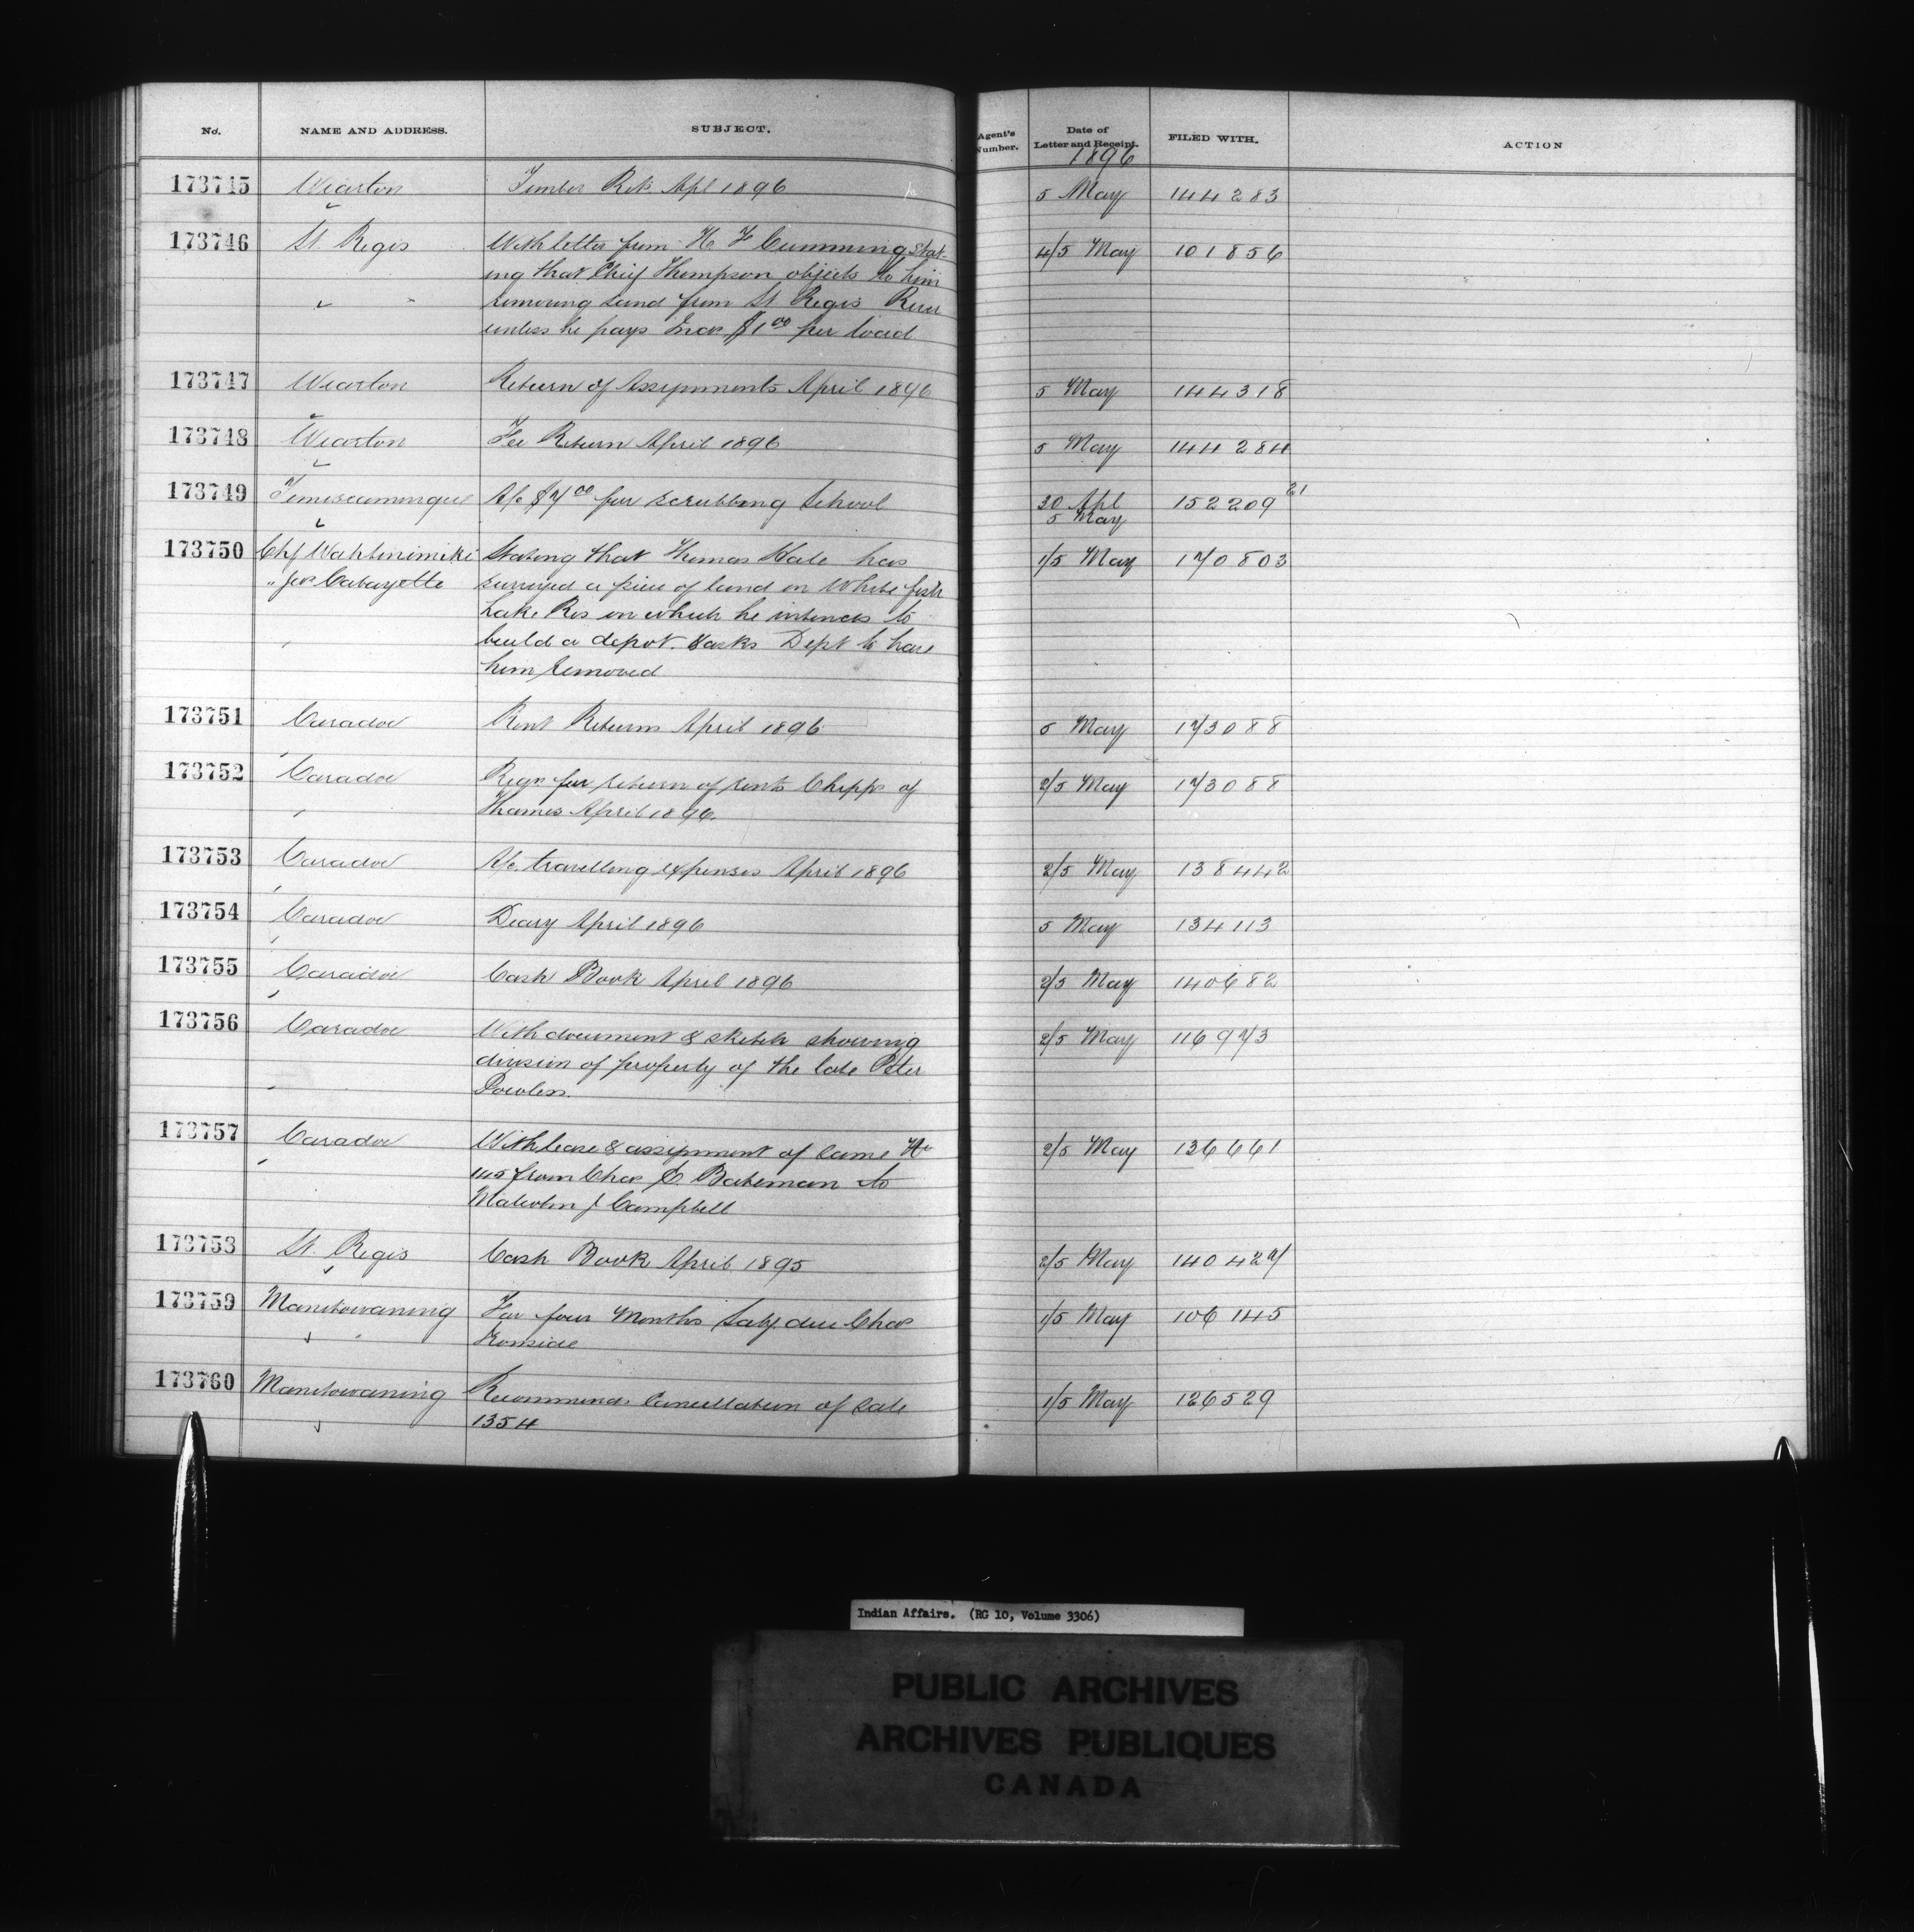 No. NAME AND ADDRESS. SUBJECT. Agent's Number. Date of Letter and Receipt. FILED WITH. ACTION
1896
173745 Wiarton Timber Ret. Apl 1896 5 May 144283
173746 St. Regis With letter from H F Cumming stat- 4/5 May 101856
ing that Chief Thompson objects to him
removing sand from St Regis River
unless he pays Inds $1 00 per load
173747 Wiarton Return of Assignments April 1896 5 May 144318
173748 Wiarton Fee Return April 1896 5 May 144284
173749 Temiscamingue A/c $7 00 for scrubbing School 30 Apl 152209 21
5 May
173750 Chf Wahtinimiki Stating that Thomas Hale has 1/5 May 170803
" Jos Cabayette surveyed a piece of land on White fish
Lake Res on which he intends to
build a depot. & asks Dept to have
him removed
173751 Caradoc Rent Returns April 1896 5 May 173088
173752 Caradoc Reqn for return of rents Chipps of 2/5 May 173088
Thames April 1896.
173753 Caradoc A/c. travelling expenses April 1896 2/5 May 138442
173754 Caradoc Diary April 1896 5 May 134113
173755 Caradoc Cash Book April 1896 2/5 May 140682
173756 Caradoc With document & sketch showing 2/5 May 116973
division of property of the late Peter
Powless.
173757 Caradoc With lease & assignment of same No 2/5 May 136661
145 from Chas C. Bateman to
Malcolm J Campbell
173758 St. Regis Cash Book April 1895 2/5 May 140427
173759 Manitowaning For four months Saly. due Chas 1/5 May 106145
Ironside
173760 Manitowaning Recommends Cancellation of Sale 1/5 May 126529
1354
Indian Affairs. (RG 10, Volume 3306)
PUBLIC ARCHIVES
ARCHIVES PUBLIQUES
CANADA